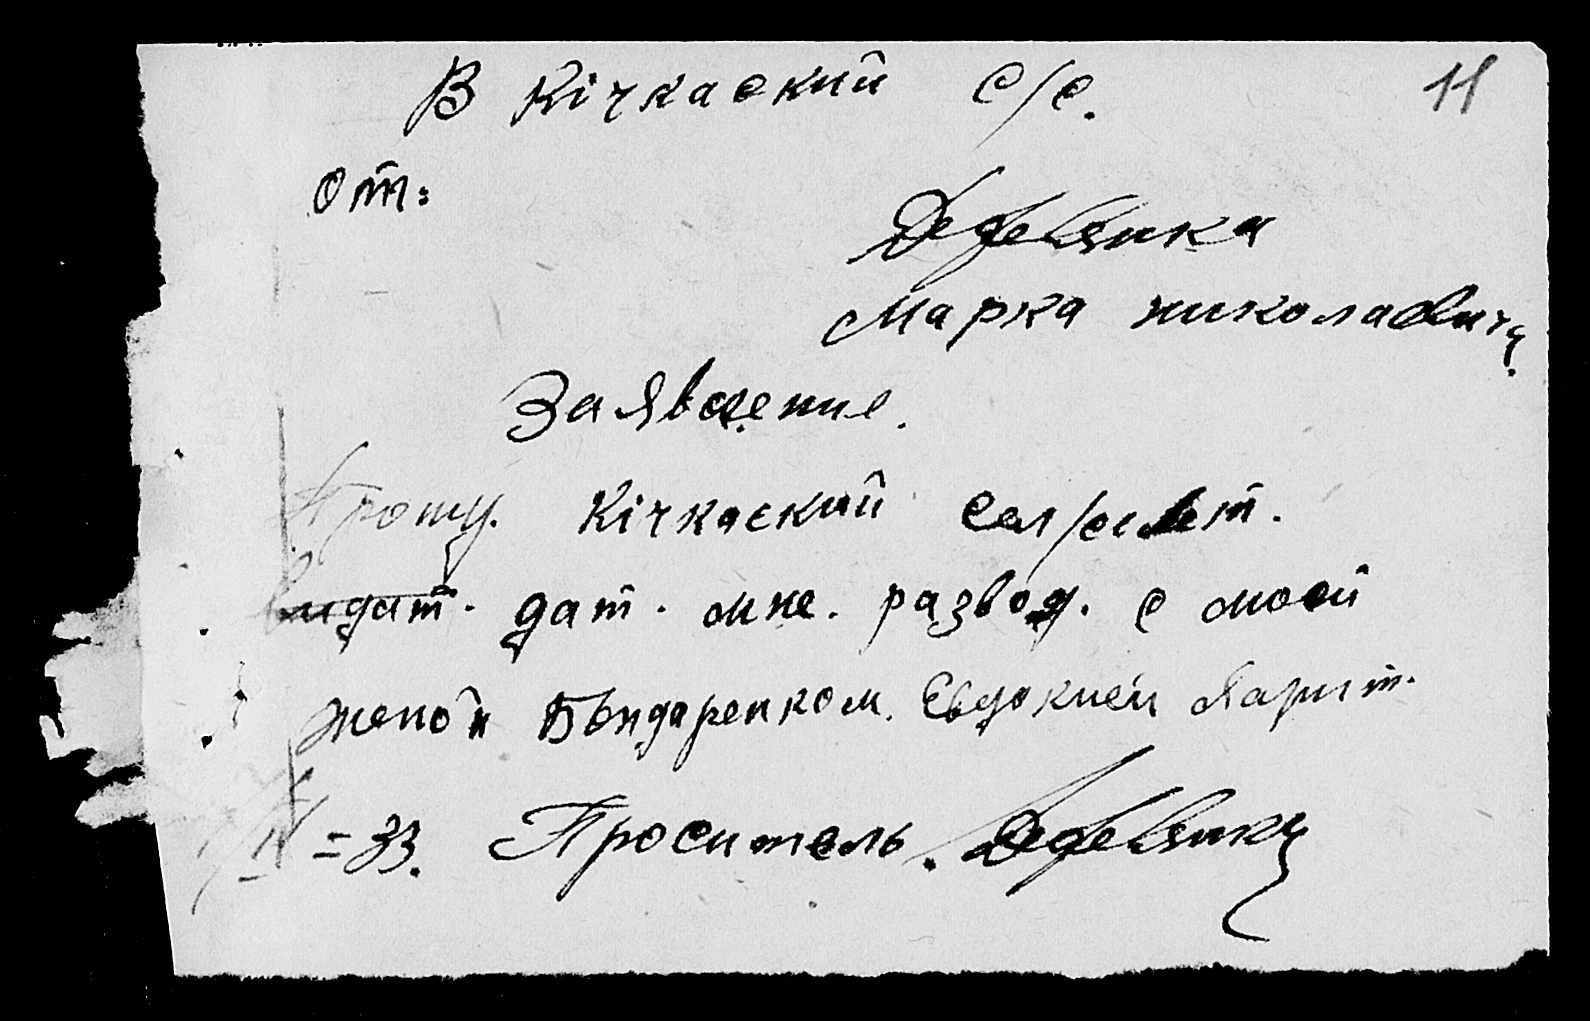 В Кічкаский С/С.
11
от:
Деревянка
Марка николаевича.
Заявление.
Прошу. Кічкаский сел/совет.
видат. дат. мне. развод. с моей
женой Бондаренком. Евдокией
= 33. Проситель. Деревянка